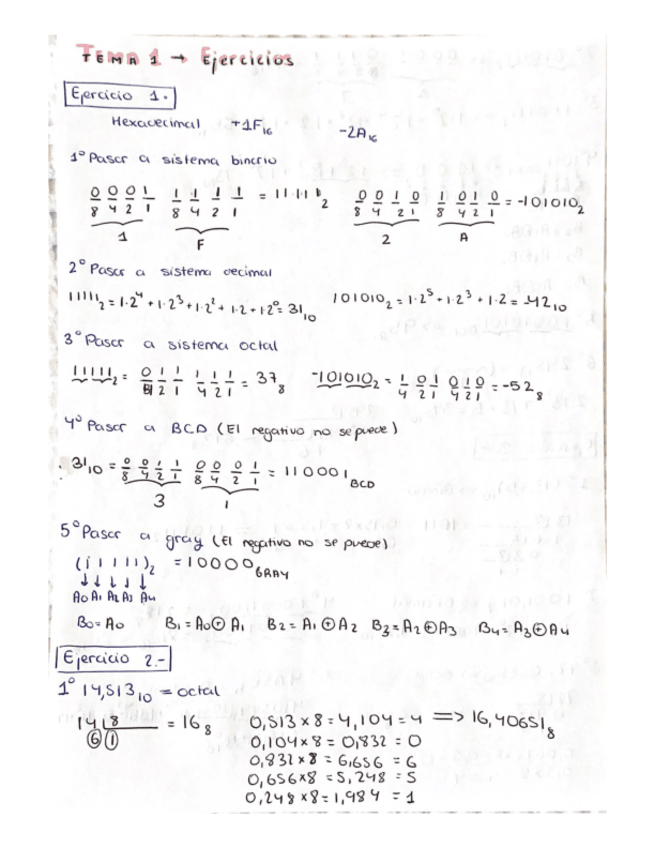 TEMA 1 → Ejercicios
Ejercicio 1.
Hexadecimal +1F₁₆ -2A₁₆
1º Pasar a sistema binario
0 0 0 1 1 1 1 1 = 11111₂ 0 0 1 0 1 0 1 0 = -101010₂
8 4 2 1 8 4 2 1 8 4 2 1 8 4 2 1
1 F 2 A
2º Pasar a sistema decimal
11111₂ = 1·2⁴ + 1·2³ + 1·2² + 1·2 + 1·2⁰ = 31₁₀ 101010₂ = 1·2⁵ + 1·2³ + 1·2 = -42₁₀
3º Pasar a sistema octal
11111₂ = 0 1 1 1 1 1 = 37₈ -101010₂ = 1 0 1 0 1 0 = -52₈
2 1 4 2 1 4 2 1 4 2 1
4º Pasar a BCD (El negativo no se puede)
31₁₀ = 0 0 1 1 0 0 0 1 = 110001 BCD
8 4 2 1 8 4 2 1
3 1
5º Pasar a gray (El negativo no se puede)
(11111)₂ = 10000 GRAY
↓ ↓ ↓ ↓ ↓
A0 A1 A2 A3 A4
B0 = A0 B1 = A0 ⊕ A1 B2 = A1 ⊕ A2 B3 = A2 ⊕ A3 B4 = A3 ⊕ A4
Ejercicio 2.-
1º 14,513₁₀ = octal
14 8 = 16₈ 0,513 x 8 = 4,104 = 4 => 16,40651₈
6 1 0,104 x 8 = 0,832 = 0
0,832 x 8 = 6,656 = 6
0,656 x 8 = 5,248 = 5
0,248 x 8 = 1,984 = 1